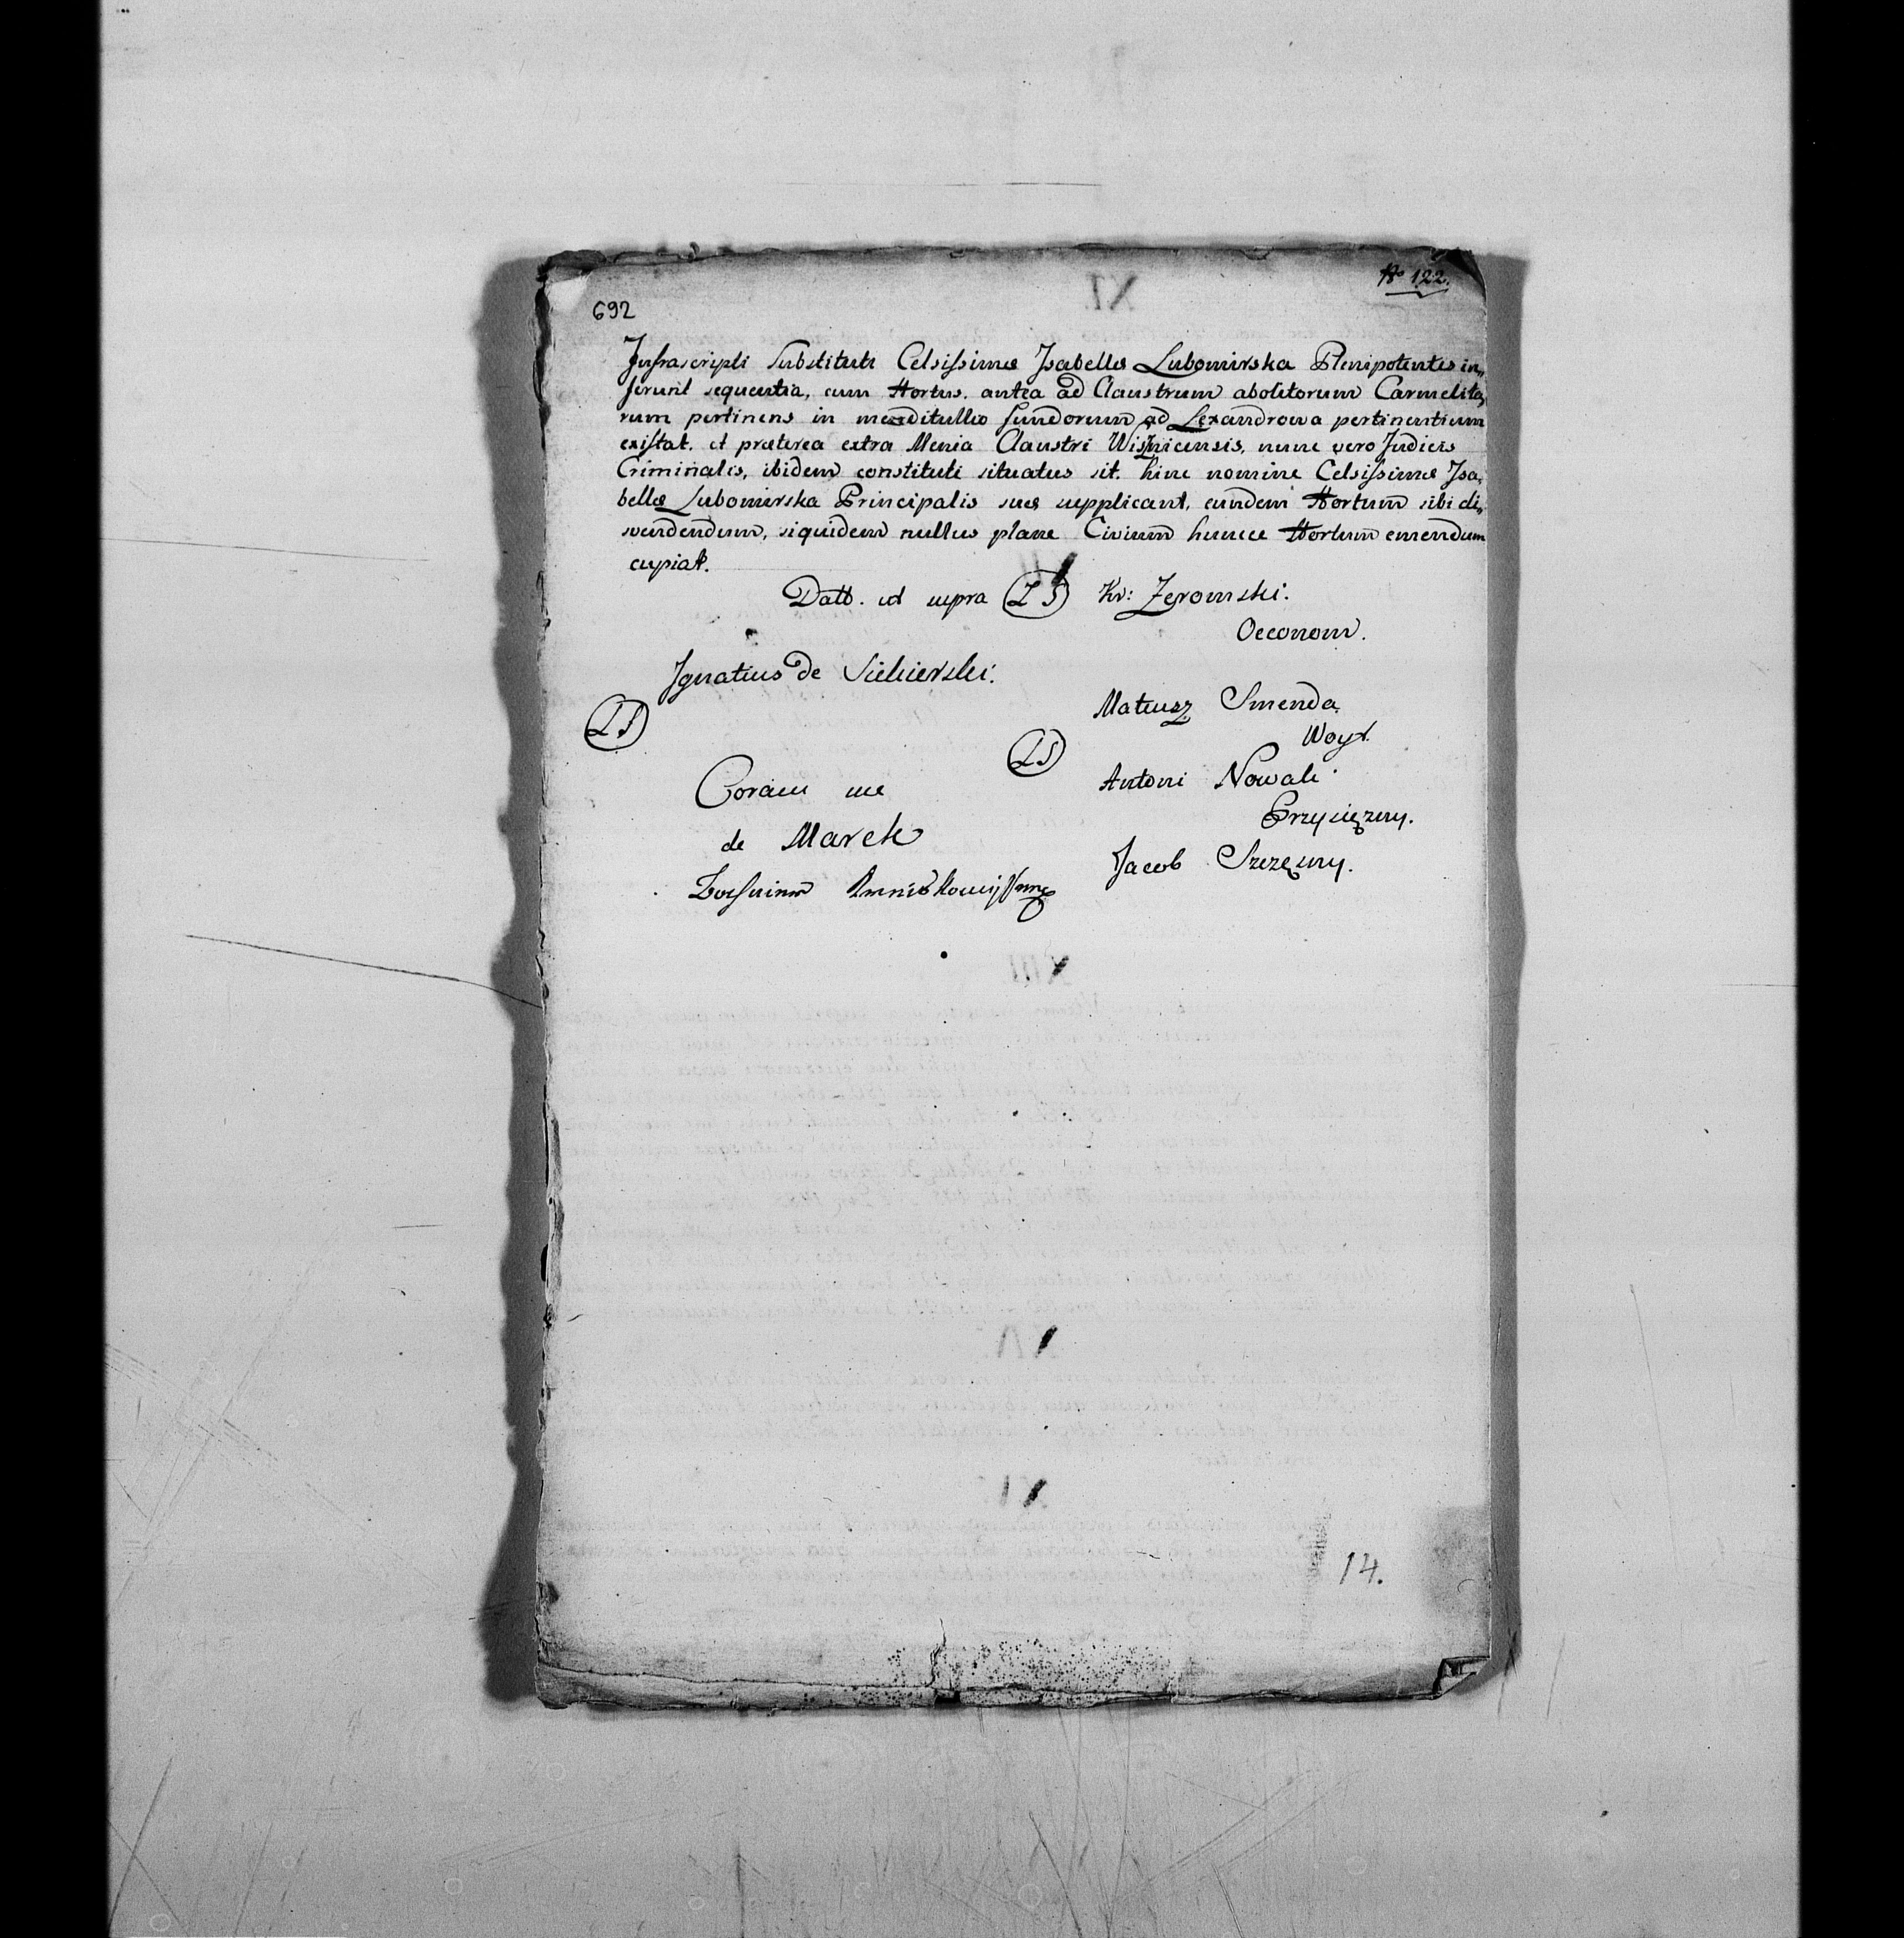 692
No 122.
Infrascripti Substituti Celsissimæ Isabellæ Lubomirska Plenipotentes in„
ferunt sequentia, cum Hortus, antea ad Claustrum abolitorum Carmelita„
rum pertinens in meditullio fundorum ad Lexandrowa pertinentium
existat, et præterea extra Menia Claustri Wisnicensis, nunc vero Judicis
Criminalis, ibidem constituti situatus sit, hinc nomine Celsissimæ Isa„
bellæ Lubomirska Principalis suæ supplicant, eundem Hortum sibi di„
vendendum, siquidem nullus plane Civium hunce Hortum emendum
cupiat.
Datt. ut supra LS Kr: Zeromski.
Oeconom.
Ignatius de Siekierski.
LS
Mateusz Smenda
Woyt.
LS
Coram me
Antoni Nowak
Przysięzny.
de Marek
Jacob Szczęzny.
14.